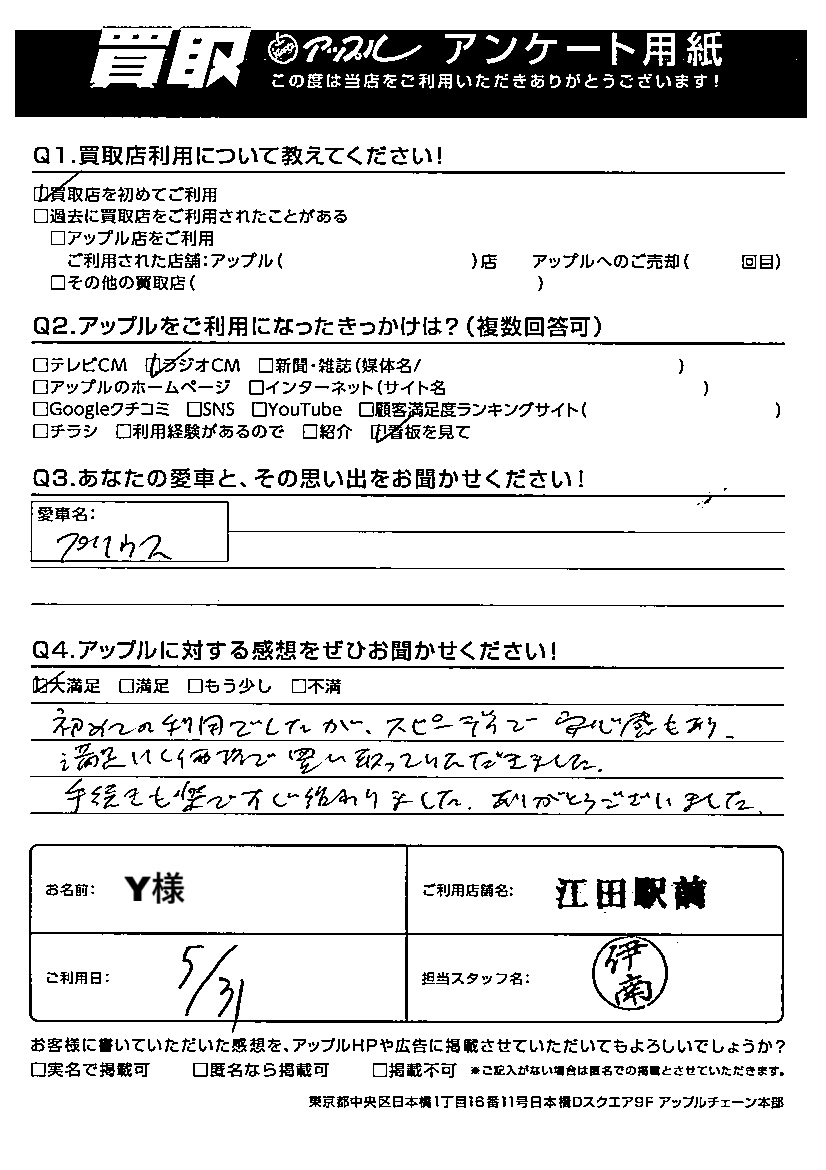 買取 アップル アンケート用紙
この度は当店をご利用いただきありがとうございます!
Q1.買取店利用について教えてください!
☑買取店を初めてご利用
□過去に買取店をご利用されたことがある
□アップル店をご利用
ご利用された店舗:アップル( )店 アップルへのご売却( 回目)
□その他の買取店( )
Q2.アップルをご利用になったきっかけは?(複数回答可)
□テレビCM ☑ラジオCM □新聞・雑誌(媒体名/ )
□アップルのホームページ □インターネット(サイト名 )
□Googleクチコミ □SNS □YouTube □顧客満足度ランキングサイト( )
□チラシ □利用経験があるので □紹介 ☑看板を見て
Q3.あなたの愛車と、その思い出をお聞かせください!
愛車名:
プリウス
Q4.アップルに対する感想をぜひお聞かせください!
☑大満足 □満足 □もう少し □不満
初めての利用でしたが、スピーディで安心感もあり、
満足いく価格で買い取っていただきました。
手続きも楽ですぐ終わりました。ありがとうございました。
お名前: Y様 ご利用店舗名: 江田駅前
ご利用日: 5/31 担当スタッフ名: 伊南
お客様に書いていただいた感想を、アップルHPや広告に掲載させていただいてもよろしいでしょうか?
□実名で掲載可 □匿名なら掲載可 □掲載不可 *ご記入がない場合は匿名での掲載とさせていただきます。
東京都中央区日本橋1丁目16番11号日本橋Dスクエア9F アップルチェーン本部